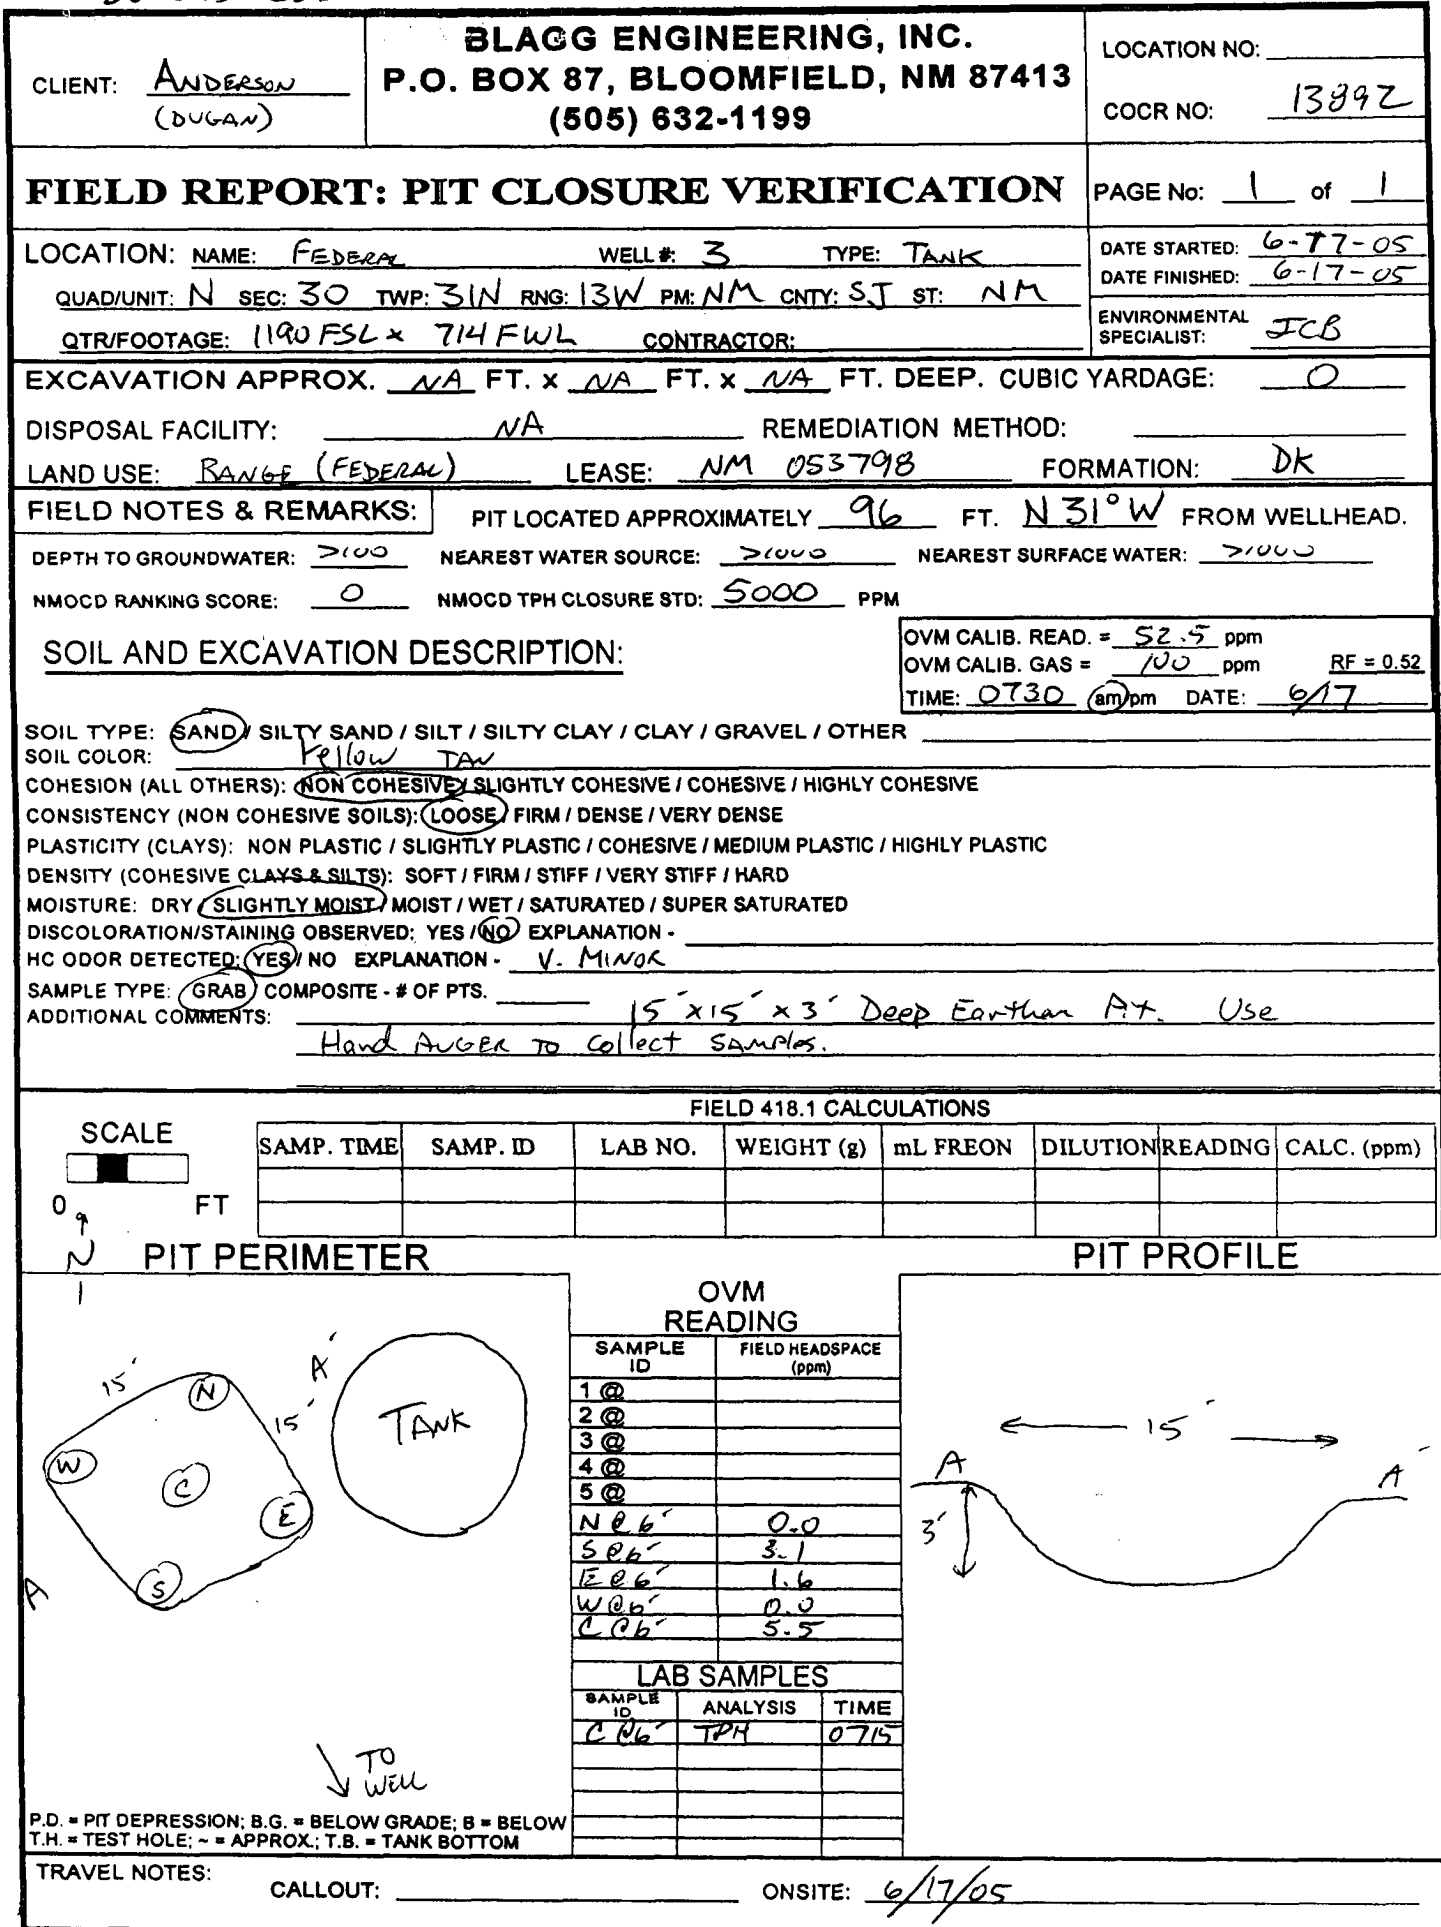 BLAGG ENGINEERING, INC.
P.O. BOX 87, BLOOMFIELD, NM 87413
(505) 632-1199
CLIENT: ANDERSON
(DUGAN)
LOCATION NO:
COCR NO: 13892
FIELD REPORT: PIT CLOSURE VERIFICATION
PAGE No: 1 of 1
LOCATION: NAME: FEDERAL WELL #: 3 TYPE: TANK
QUAD/UNIT: N SEC: 30 TWP: 31N RNG: 13W PM: NM CNTY: SJ ST: NM
QTR/FOOTAGE: 1190 FSL x 714 FWL CONTRACTOR:
DATE STARTED: 6-17-05
DATE FINISHED: 6-17-05
ENVIRONMENTAL
SPECIALIST: JCB
EXCAVATION APPROX. NA FT. x NA FT. x NA FT. DEEP. CUBIC YARDAGE: 0
DISPOSAL FACILITY: NA REMEDIATION METHOD:
LAND USE: RANGE (FEDERAL) LEASE: NM 053798 FORMATION: DK
FIELD NOTES & REMARKS: PIT LOCATED APPROXIMATELY 96 FT. N 31° W FROM WELLHEAD.
DEPTH TO GROUNDWATER: >100 NEAREST WATER SOURCE: >1000 NEAREST SURFACE WATER: >1000
NMOCD RANKING SCORE: 0 NMOCD TPH CLOSURE STD: 5000 PPM
SOIL AND EXCAVATION DESCRIPTION:
OVM CALIB. READ. = 52.5 ppm
OVM CALIB. GAS = 100 ppm RF = 0.52
TIME: 0730 am/pm DATE: 6/17
SOIL TYPE: SAND / SILTY SAND / SILT / SILTY CLAY / CLAY / GRAVEL / OTHER
SOIL COLOR: Yellow TAN
COHESION (ALL OTHERS): NON COHESIVE / SLIGHTLY COHESIVE / COHESIVE / HIGHLY COHESIVE
CONSISTENCY (NON COHESIVE SOILS): LOOSE / FIRM / DENSE / VERY DENSE
PLASTICITY (CLAYS): NON PLASTIC / SLIGHTLY PLASTIC / COHESIVE / MEDIUM PLASTIC / HIGHLY PLASTIC
DENSITY (COHESIVE CLAYS & SILTS): SOFT / FIRM / STIFF / VERY STIFF / HARD
MOISTURE: DRY / SLIGHTLY MOIST / MOIST / WET / SATURATED / SUPER SATURATED
DISCOLORATION/STAINING OBSERVED: YES / NO EXPLANATION -
HC ODOR DETECTED: YES / NO EXPLANATION - V. MINOR
SAMPLE TYPE: GRAB / COMPOSITE - # OF PTS.
ADDITIONAL COMMENTS: 15' x 15' x 3' Deep Earthan Pit. Use
Hand AUGER TO Collect SAMPles.
FIELD 418.1 CALCULATIONS
SCALE
0 FT
SAMP. TIME SAMP. ID LAB NO. WEIGHT (g) mL FREON DILUTION READING CALC. (ppm)
N
PIT PERIMETER
PIT PROFILE
15'
15'
A'
A
N
W
C
E
S
TANK
TO
WELL
OVM
READING
SAMPLE ID FIELD HEADSPACE (ppm)
1 @
2 @
3 @
4 @
5 @
N @ 6' 0.0
S @ 6' 3.1
E @ 6' 1.6
W @ 6' 0.0
C @ 6' 5.5
LAB SAMPLES
SAMPLE ID ANALYSIS TIME
C @ 6' TPH 0715
15'
A
A'
3'
P.D. = PIT DEPRESSION; B.G. = BELOW GRADE; B = BELOW
T.H. = TEST HOLE; ~ = APPROX.; T.B. = TANK BOTTOM
TRAVEL NOTES:
CALLOUT: ONSITE: 6/17/05